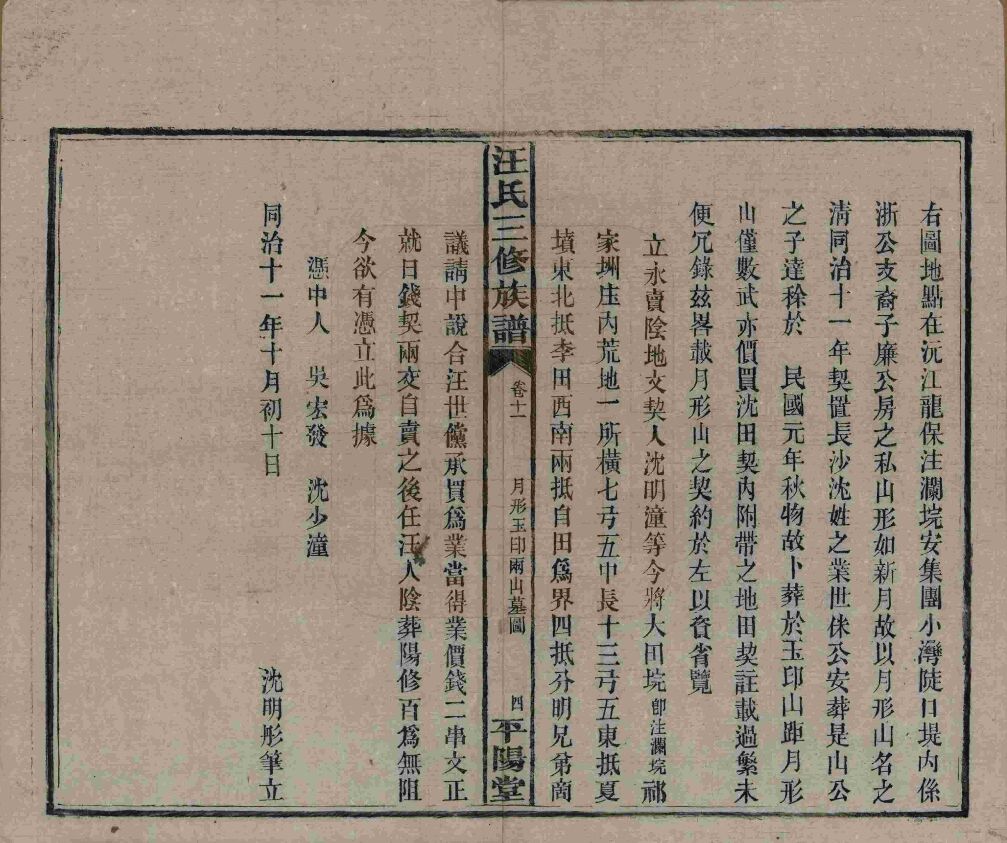 右圖地點在沅江龍保注瀾垸安集團小灣陡口堤內係
浙公支裔子廉公房之私山形如新月故以月形山名之
清同治十一年契置長沙沈姓之業世俫公安葬是山公
之子達稌於　民國元年秋物故卜葬於玉印山距月形
山僅數武亦價買沈田契內附帶之地田契註載過繁未
便冗錄茲畧載月形山之契約於左以資省覽
立永賣陰地文契人沈明潼等今將大田垸卽注瀾垸祁
家坝庄內荒地一所橫七弓五中長十三弓五東抵夏
墳東北抵李田西南兩抵自田為界四抵分明兄弟商
汪氏三修族譜
卷十一
月形玉印兩山墓圖
四
平陽堂
議請中說合汪世儻承買爲業當得業價錢二串文正
就日錢契兩交自賣之後任汪人陰葬陽修百爲無阻
今欲有憑立此爲據
憑中人　吳宏發　沈少潼
同治十一年十月初十日　沈明彤筆立